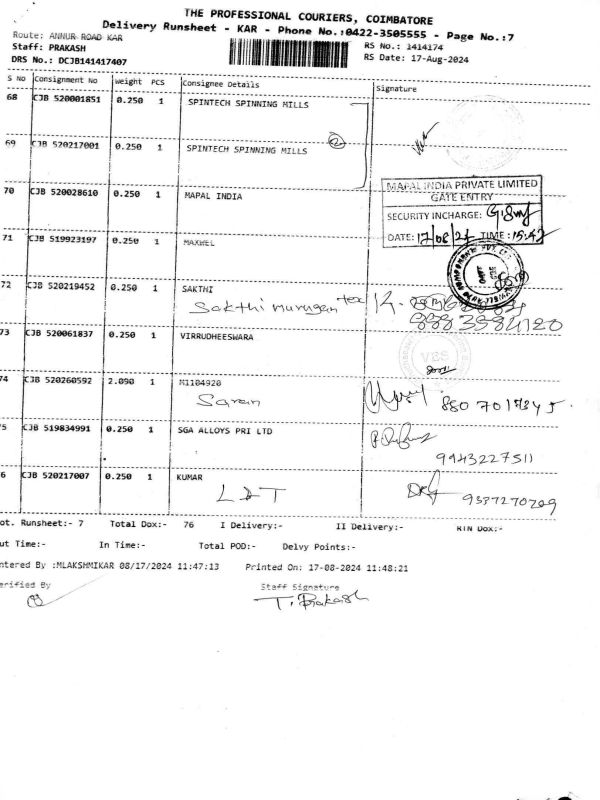 THE PROFESSIONAL COURIERS, COIMBATORE
Delivery Runsheet - KAR - Phone No.:0422-3505555 - Page No.:7
Route: ANNUR ROAD KAR RS No.: 1414174
Staff: PRAKASH RS Date: 17-Aug-2024
DRS No.: DCJB141417407
S No Consignment No Weight PCS Consignee Details Signature
68 CJB 520001851 0.250 1 SPINTECH SPINNING MILLS
69 CJB 520217001 0.250 1 SPINTECH SPINNING MILLS
2
70 CJB 520028610 0.250 1 MAPAL INDIA
MAPAL INDIA PRIVATE LIMITED
GATE ENTRY
SECURITY INCHARGE:
DATE: 17/08/24 TIME: 15:47
71 CJB 519923197 0.250 1 MAXWEL
72 CJB 520219452 0.250 1 SAKTHI
Sakthi murugan tex
8883584120
73 CJB 520061837 0.250 1 VIRRUDHEESWARA
VBS
74 CJB 520260592 2.090 1 M1104920
Saran
880 7017345
75 CJB 519834991 0.250 1 SGA ALLOYS PRI LTD
9943227511
76 CJB 520217007 0.250 1 KUMAR
L&T
9337270709
ot. Runsheet:- 7 Total Dox:- 76 I Delivery:- II Delivery:- RTN Dox:-
ut Time:- In Time:- Total POD:- Delvy Points:-
ntered By :MLAKSHMIKAR 08/17/2024 11:47:13 Printed On: 17-08-2024 11:48:21
erified By Staff Signature
T. Prakash